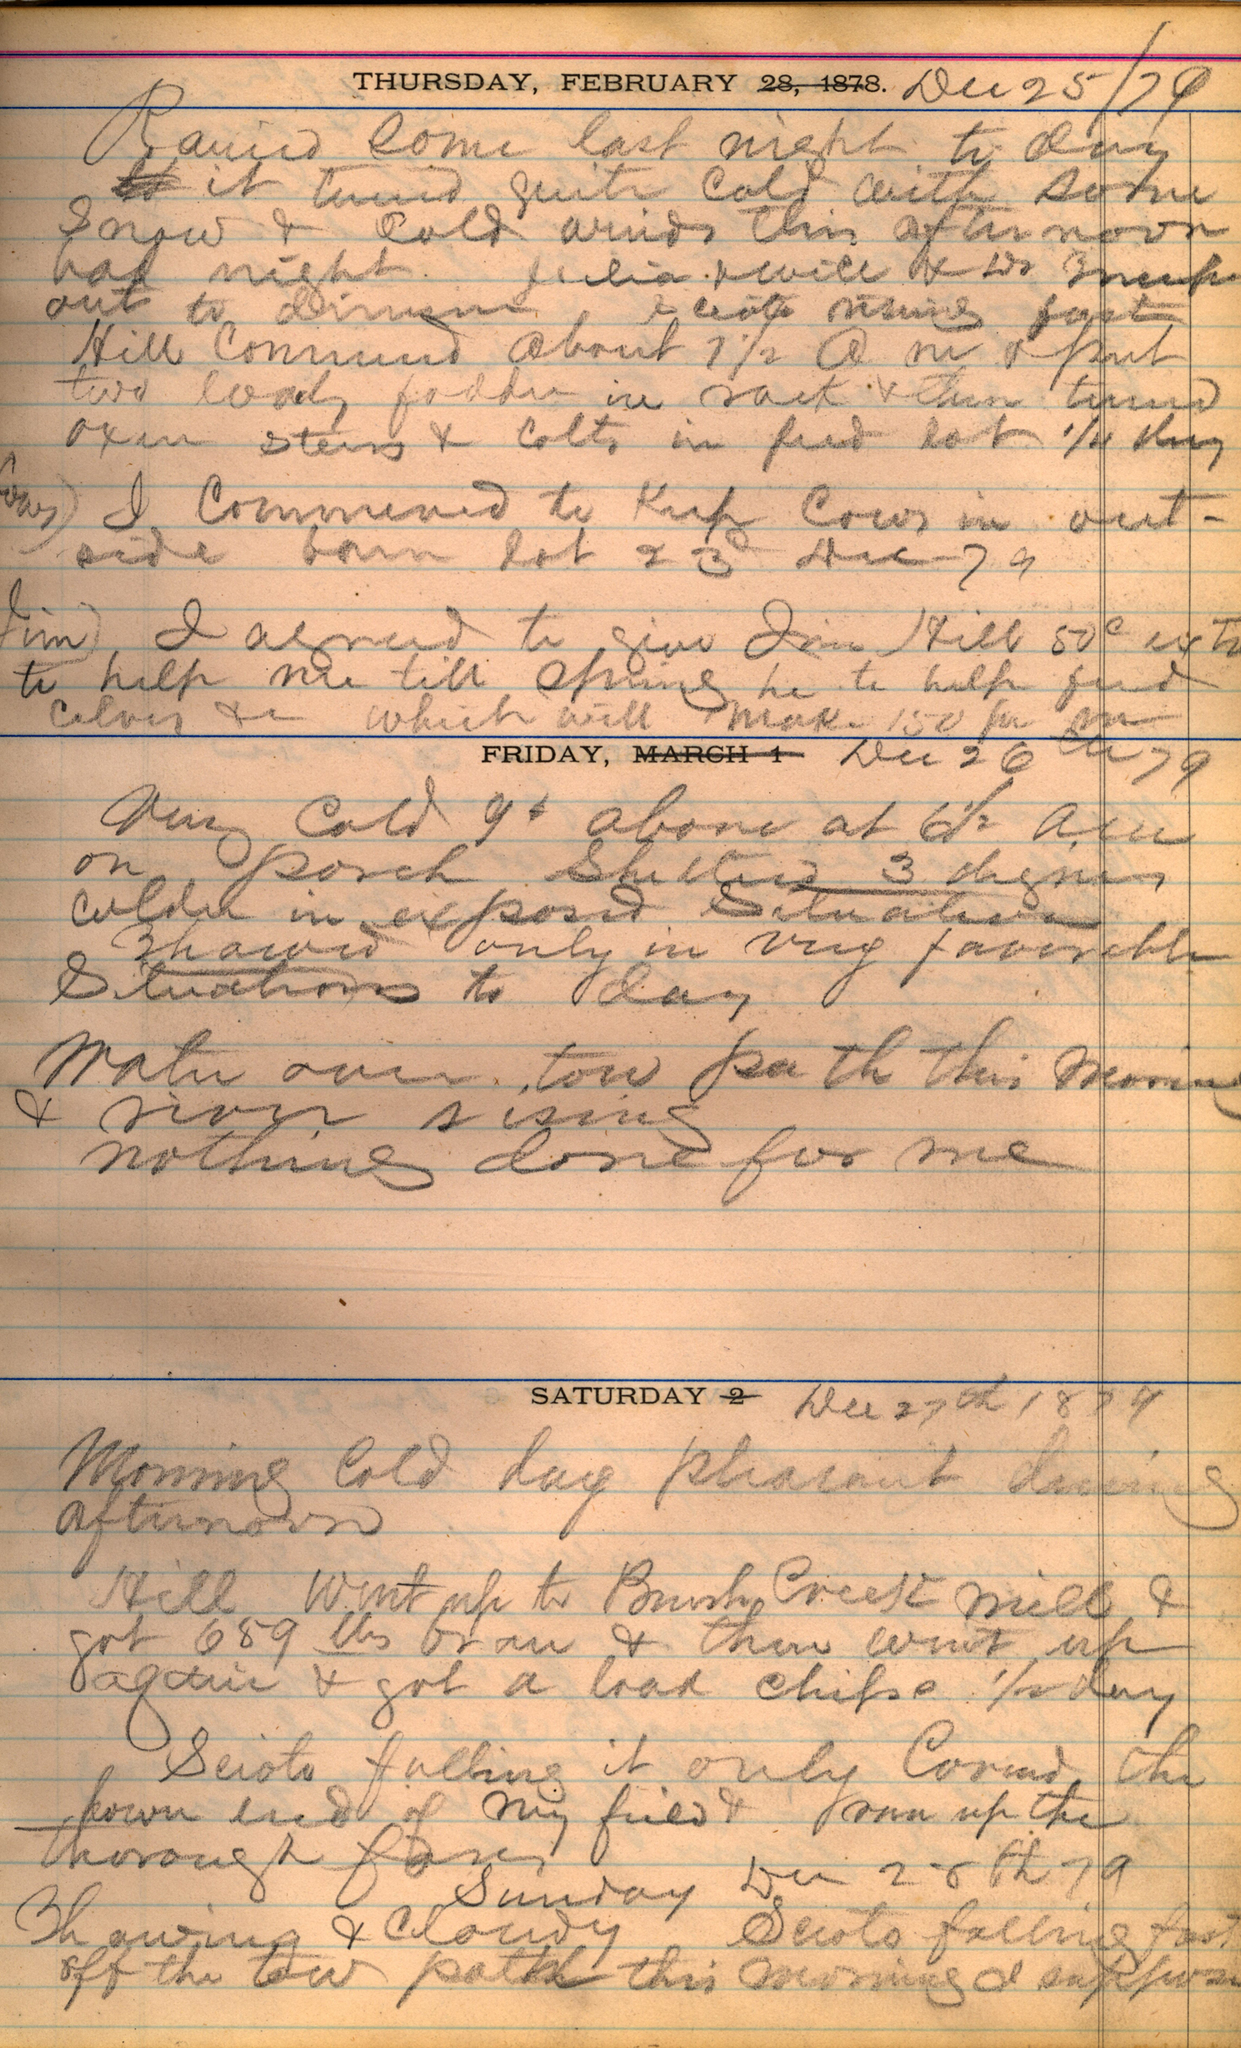 THURSDAY, FEBRUARY 28, 1878. Dec 25/79
Rained Some last night to day
it turned quite Cold with Some
Snow & Cold winds this afternoon
bad night Julia & Will & Dr
out to dinner Scioto rising fast
Hill Commenced about 7 1/2 A m & put
two loads fodder in rack & then turned
oxen steers & Colts in feed lot 1/4 day
Cows) I Commenced to Keep Cows in out-
side barn lot 23d Dec 79
Jim) I agreed to give Jim Hill 50c extra
to help me till Spring he to help feed
Calves &c which will make 150 per
FRIDAY, MARCH 1 Dec 26th 79
Very Cold 9° above at 6 1/2 A m
on porch Sheltered 3 degrees
colder in exposed Situation
Thawed only in very favorable
Situations to day
Water over tow path this Morning
& river rising
nothing done for me
SATURDAY 2 Dec 27th 1879
Morning Cold day pleasant during
afternoon
Hill Went up to Brush Creek mill &
got 689 lbs bran & then went up
again & got a load chips 1/2 day
Scioto falling it only Covered the
lower end of My field & ran up the
thorough fares
Sunday Dec 28th 79
Thawing & Cloudy Scioto falling fast
off the tow path this morning I suppose